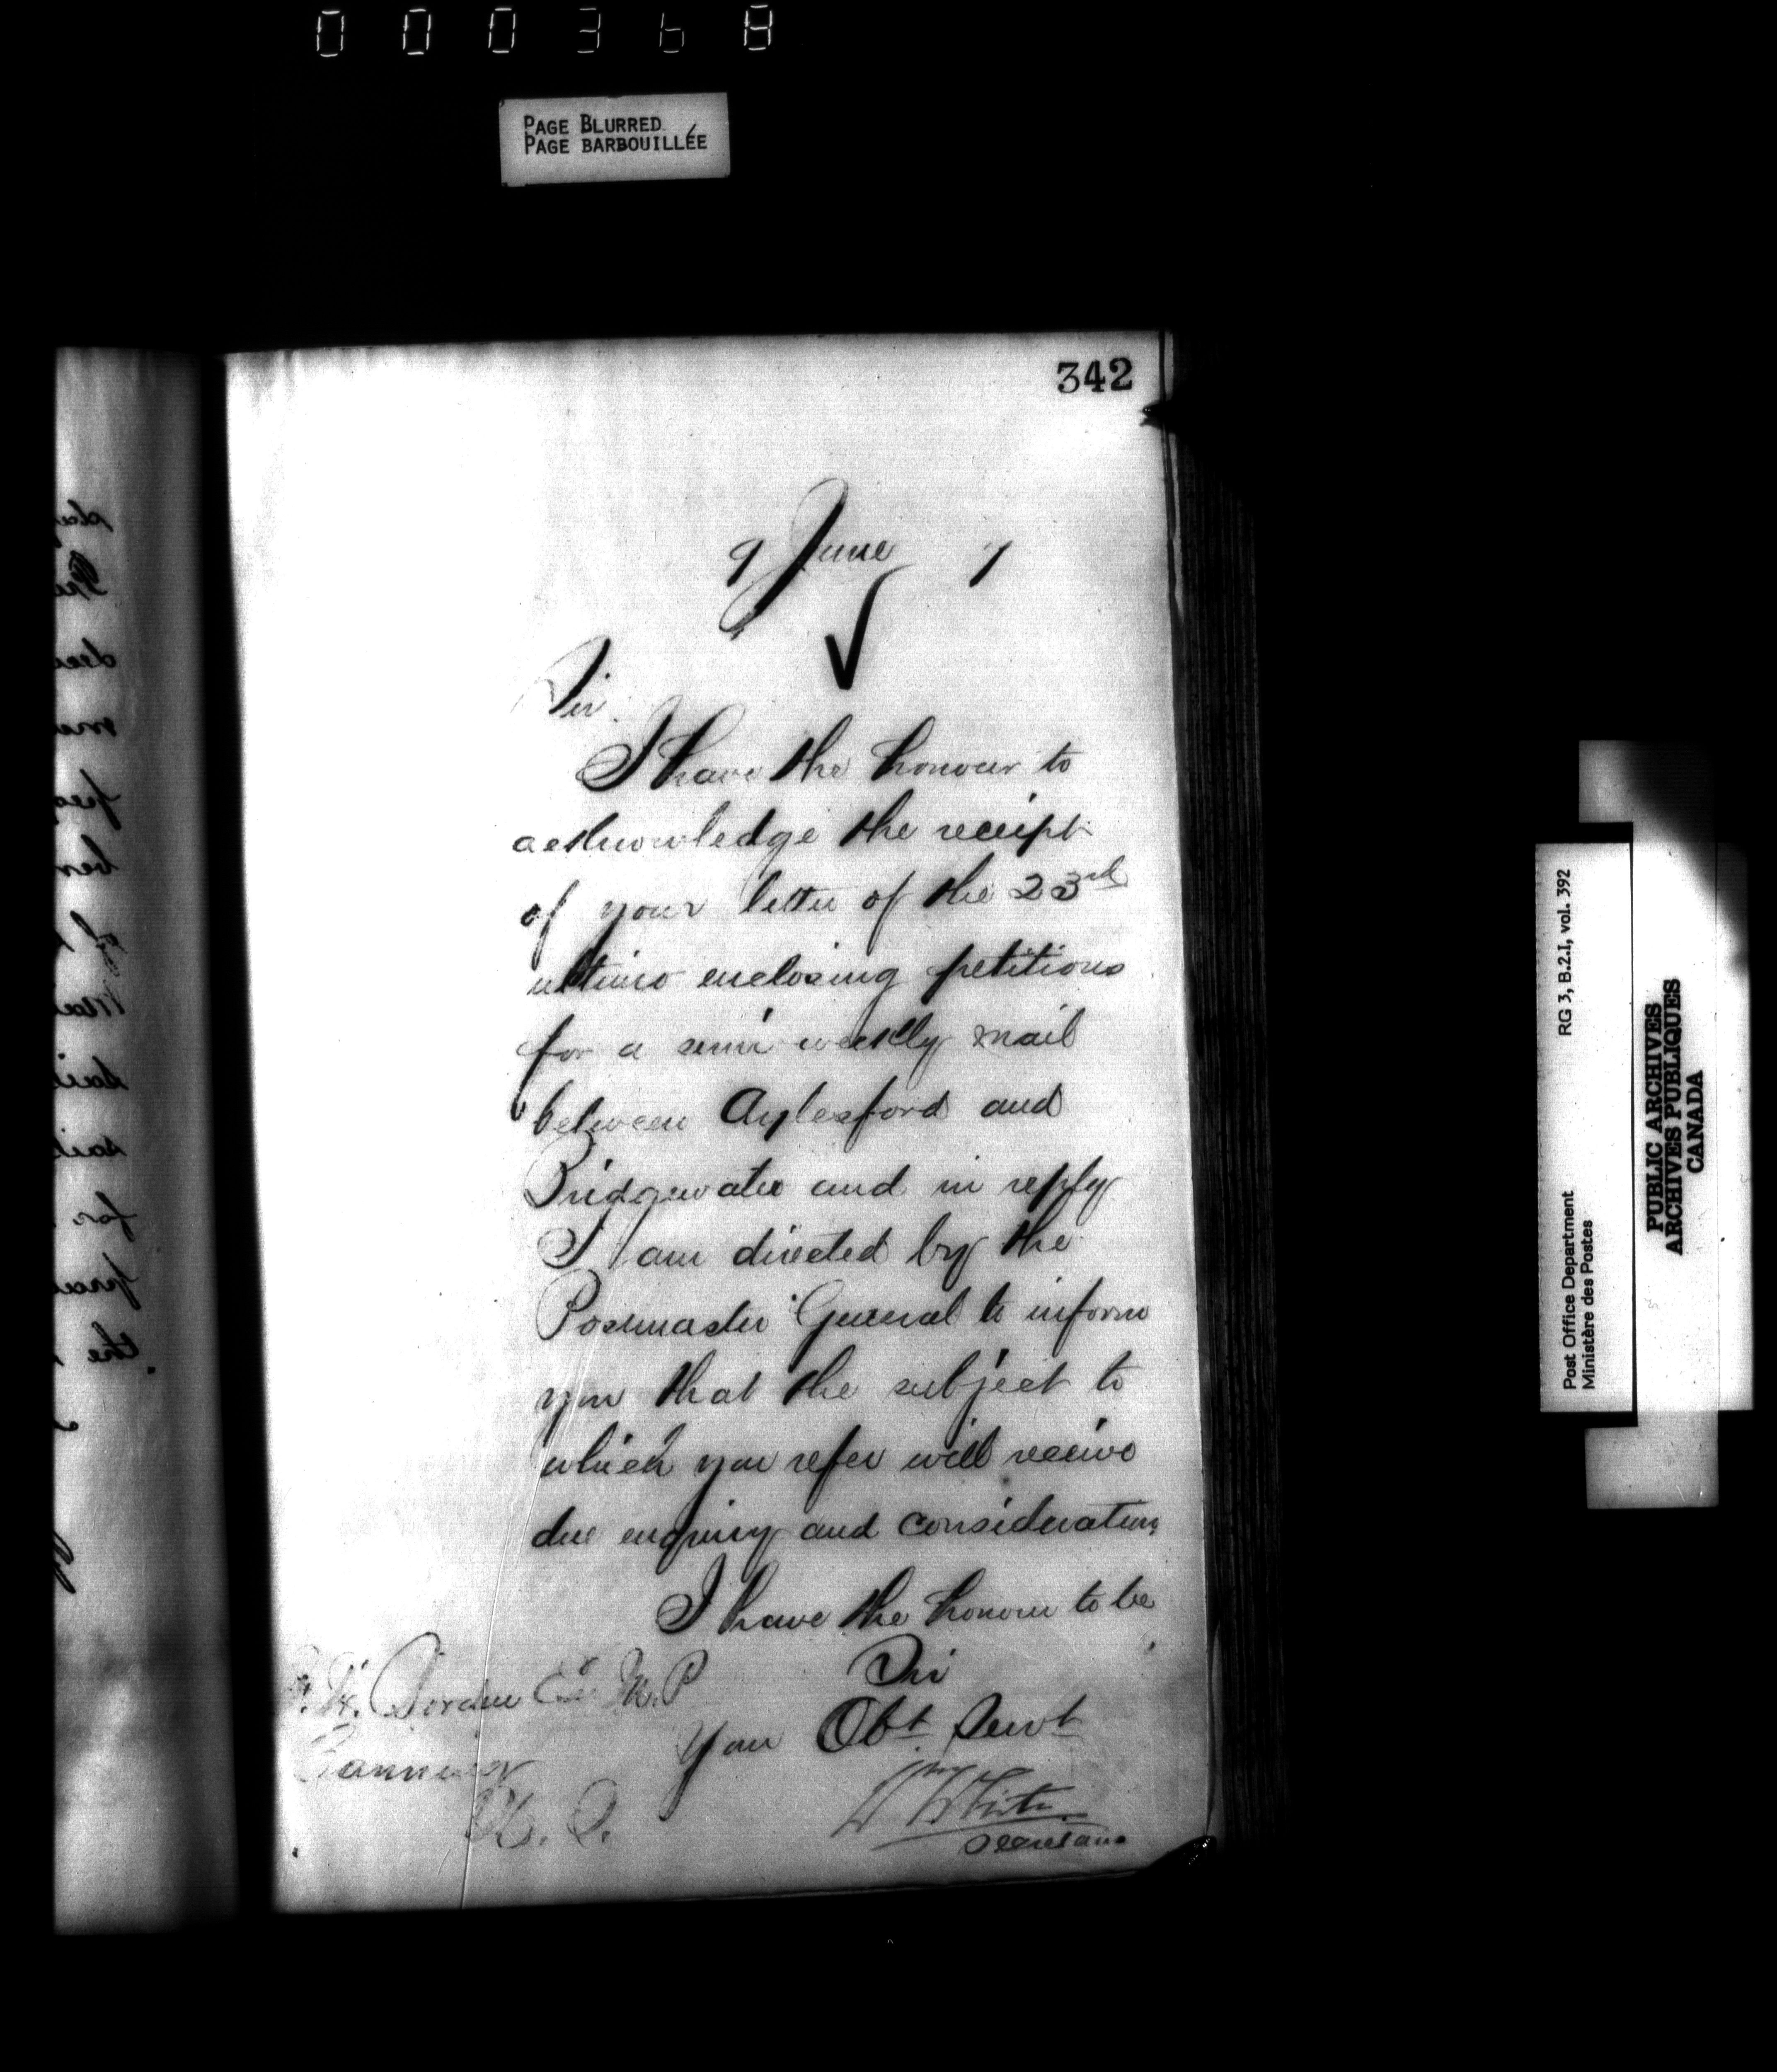 000368
PAGE BLURRED
PAGE BARBOUILLÉE
342
9 June 7
Sir.
I have the honour to
acknowledge the receipt
of your letter of the 23rd
ultimo enclosing petitions
for a semi weekly mail
between Aylesford and
Bridgewater and in reply
I am directed by the
Postmaster General to inform
you that the subject to
which you refer will receive
due enquiry and consideration
I have the honour to be
Sir
Your Obt Servt
F. W. Borden Esq M.P
Canning
N. S.
Wm White
Secretary
RG 3, B.2.1, vol. 392
Post Office Department
Ministère des Postes
PUBLIC ARCHIVES
ARCHIVES PUBLIQUES
CANADA